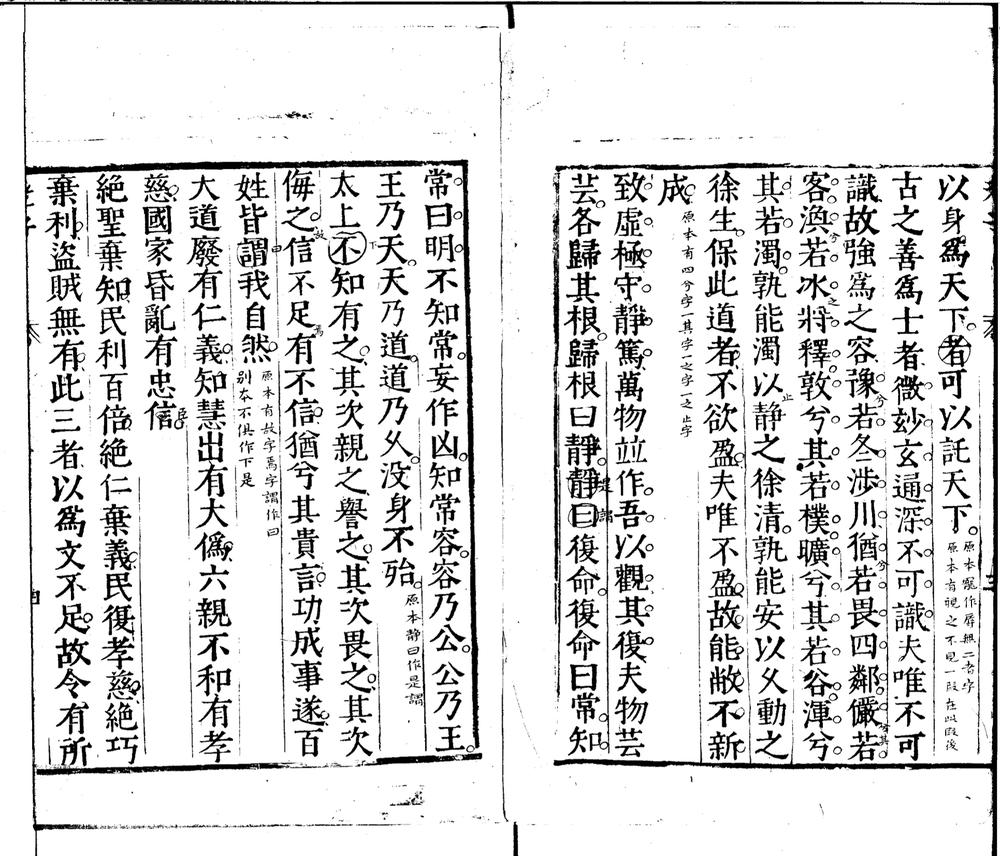 以身爲天下者可以託天下
原本寵作辱無二者字
原本有視之不見一段在此段後
古之善爲士者微妙玄通深不可識夫唯不可
識故強爲之容豫若冬涉川猶若畏四鄰儼若
客渙若冰將釋敦兮其若樸曠兮其若谷渾兮
其若濁孰能濁以静之徐清孰能安以久動之
徐生保此道者不欲盈夫唯不盈故能敝不新
成
原本有四兮字一其字一之字一之止字
致虛極守靜篤萬物竝作吾以觀其復夫物芸
芸各歸其根歸根曰靜靜曰復命復命曰常知
常曰明不知常妄作凶知常容容乃公公乃王
王乃天天乃道道乃久没身不殆
原本静曰作是謂
太上不知有之其次親之譽之其次畏之其次
侮之信不足有不信猶兮其貴言功成事遂百
姓皆謂我自然
原本有故字焉字謂作曰
別本不俱作下是
大道廢有仁義知慧出有大僞六親不和有孝
慈國家昏亂有忠信
絕聖棄知民利百倍絕仁棄義民復孝慈絕巧
棄利盜賊無有此三者以爲文不足故令有所